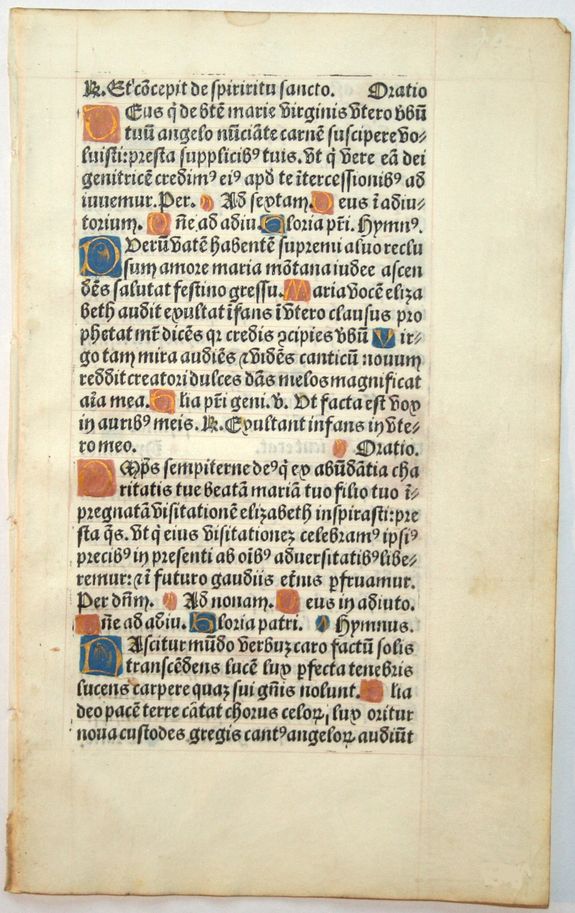 ℟. Et cōcepit de spiriritu sancto. Oratio
DEus q̄ de btē marie virginis vtero vbū
tuū angelo nūciāte carnē suscipere vo⸗
luisti: presta supplicibꝰ tuis. vt q̄ vere eā dei
genitricē credimꝰ eiꝰ apd te ītercessionibꝰ ad
iuuemur. Per. Ad sextam. Deus ī adiu⸗
torium. Dñe ad adiu. Gloria pr̄i. Hymnꝰ.
DVerū vatē habentē supremi aluo reclu
sum amore maria mōtana iudee ascen
dēs salutat festino gressu. Maria vocē eliza
beth audit exultat īfans ī vtero clausus pro
phetat mr̄ dicēs qr credis ꝯcipies vbū Vir⸗
go tam mira audiēs ⁊ vidēs canticū nouum
reddit creatori dulces dās melos magnificat
aīa mea. Glia pr̄i geni. ℣. Vt facta est vox
in auribꝰ meis. ℟. Exultant infans in vte⸗
ro meo. Oratio.
OMp̄s sempiterne deꝰ q̄ ex abūdātia cha
ritatis tue beatam mariā tuo filio tuo ī⸗
pregnatā visitationē elizabeth inspirasti: pre
sta q̄s. vt q̄ eius visitationez celebramꝰ ipsiꝰ
precibꝰ in presenti ab oībꝰ aduersitatibꝰ libe⸗
remur: ⁊ ī futuro gaudiis et̄nis ꝑfruamur.
Per dn̄m. Ad nonam. Deus in adiuto.
Dñe ad adiu. Gloria patri. Hymnus.
NAscitur mūdo verbuz caro factū solis
transcēdens lucē lux ꝑfecta tenebris
lucens carpere quaz sui gn̄is nolunt. Glia
deo pacē terre cātat chorus celoꝝ, lux oritur
noua custodes gregis cantꝰ angeloꝝ audiūt